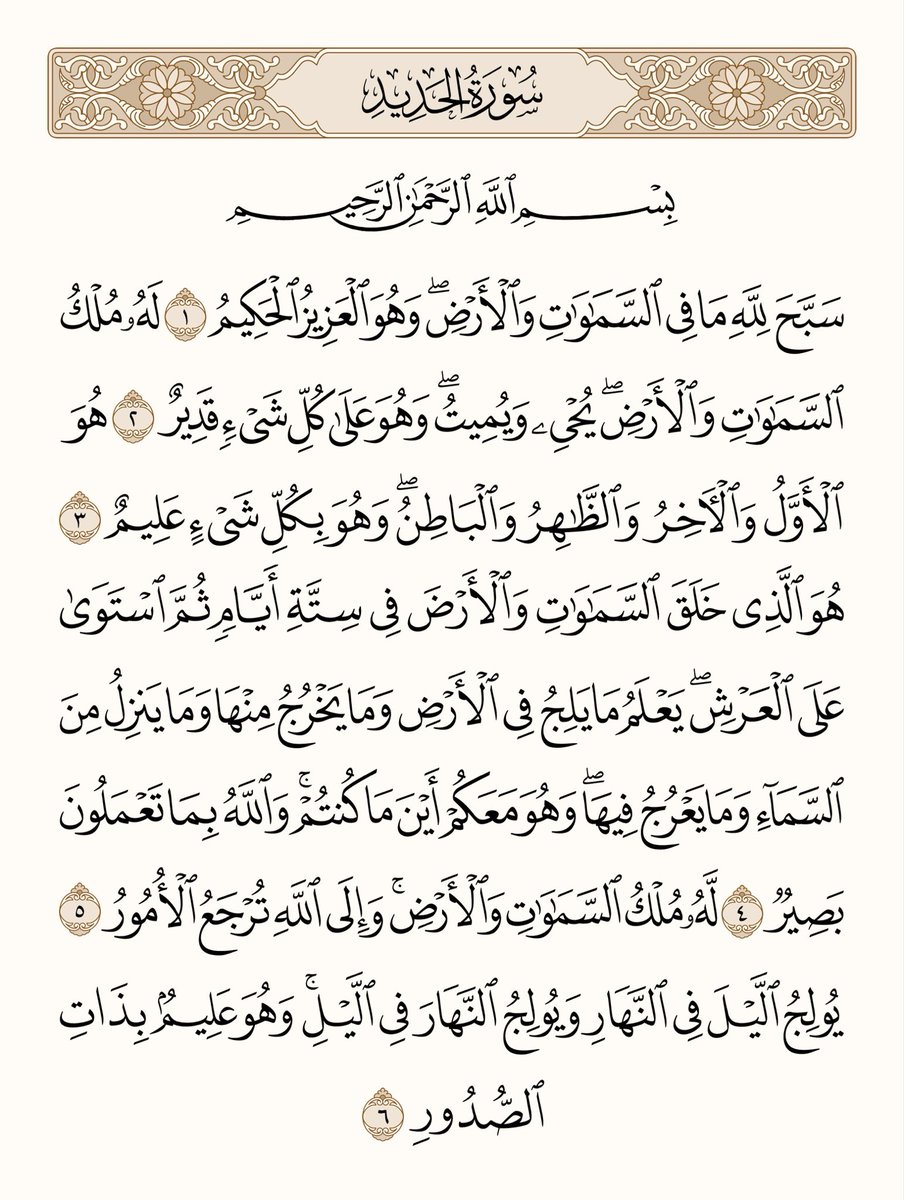 سُورَةُ الحَدِيدِ
بِسْمِ ٱللَّهِ ٱلرَّحْمَٰنِ ٱلرَّحِيمِ
سَبَّحَ لِلَّهِ مَا فِى ٱلسَّمَٰوَٰتِ وَٱلْأَرْضِ ۖ وَهُوَ ٱلْعَزِيزُ ٱلْحَكِيمُ ١ لَهُۥ مُلْكُ
ٱلسَّمَٰوَٰتِ وَٱلْأَرْضِ ۖ يُحْىِۦ وَيُمِيتُ ۖ وَهُوَ عَلَىٰ كُلِّ شَىْءٍ قَدِيرٌ ٢ هُوَ
ٱلْأَوَّلُ وَٱلْءَاخِرُ وَٱلظَّٰهِرُ وَٱلْبَاطِنُ ۖ وَهُوَ بِكُلِّ شَىْءٍ عَلِيمٌ ٣
هُوَ ٱلَّذِى خَلَقَ ٱلسَّمَٰوَٰتِ وَٱلْأَرْضَ فِى سِتَّةِ أَيَّامٍ ثُمَّ ٱسْتَوَىٰ
عَلَى ٱلْعَرْشِ ۖ يَعْلَمُ مَا يَلِجُ فِى ٱلْأَرْضِ وَمَا يَخْرُجُ مِنْهَا وَمَا يَنزِلُ مِنَ
ٱلسَّمَآءِ وَمَا يَعْرُجُ فِيهَا ۖ وَهُوَ مَعَكُمْ أَيْنَ مَا كُنتُمْ ۚ وَٱللَّهُ بِمَا تَعْمَلُونَ
بَصِيرٌ ٤ لَّهُۥ مُلْكُ ٱلسَّمَٰوَٰتِ وَٱلْأَرْضِ ۚ وَإِلَى ٱللَّهِ تُرْجَعُ ٱلْأُمُورُ ٥
يُولِجُ ٱلَّيْلَ فِى ٱلنَّهَارِ وَيُولِجُ ٱلنَّهَارَ فِى ٱلَّيْلِ ۚ وَهُوَ عَلِيمٌۢ بِذَاتِ
ٱلصُّدُورِ ٦